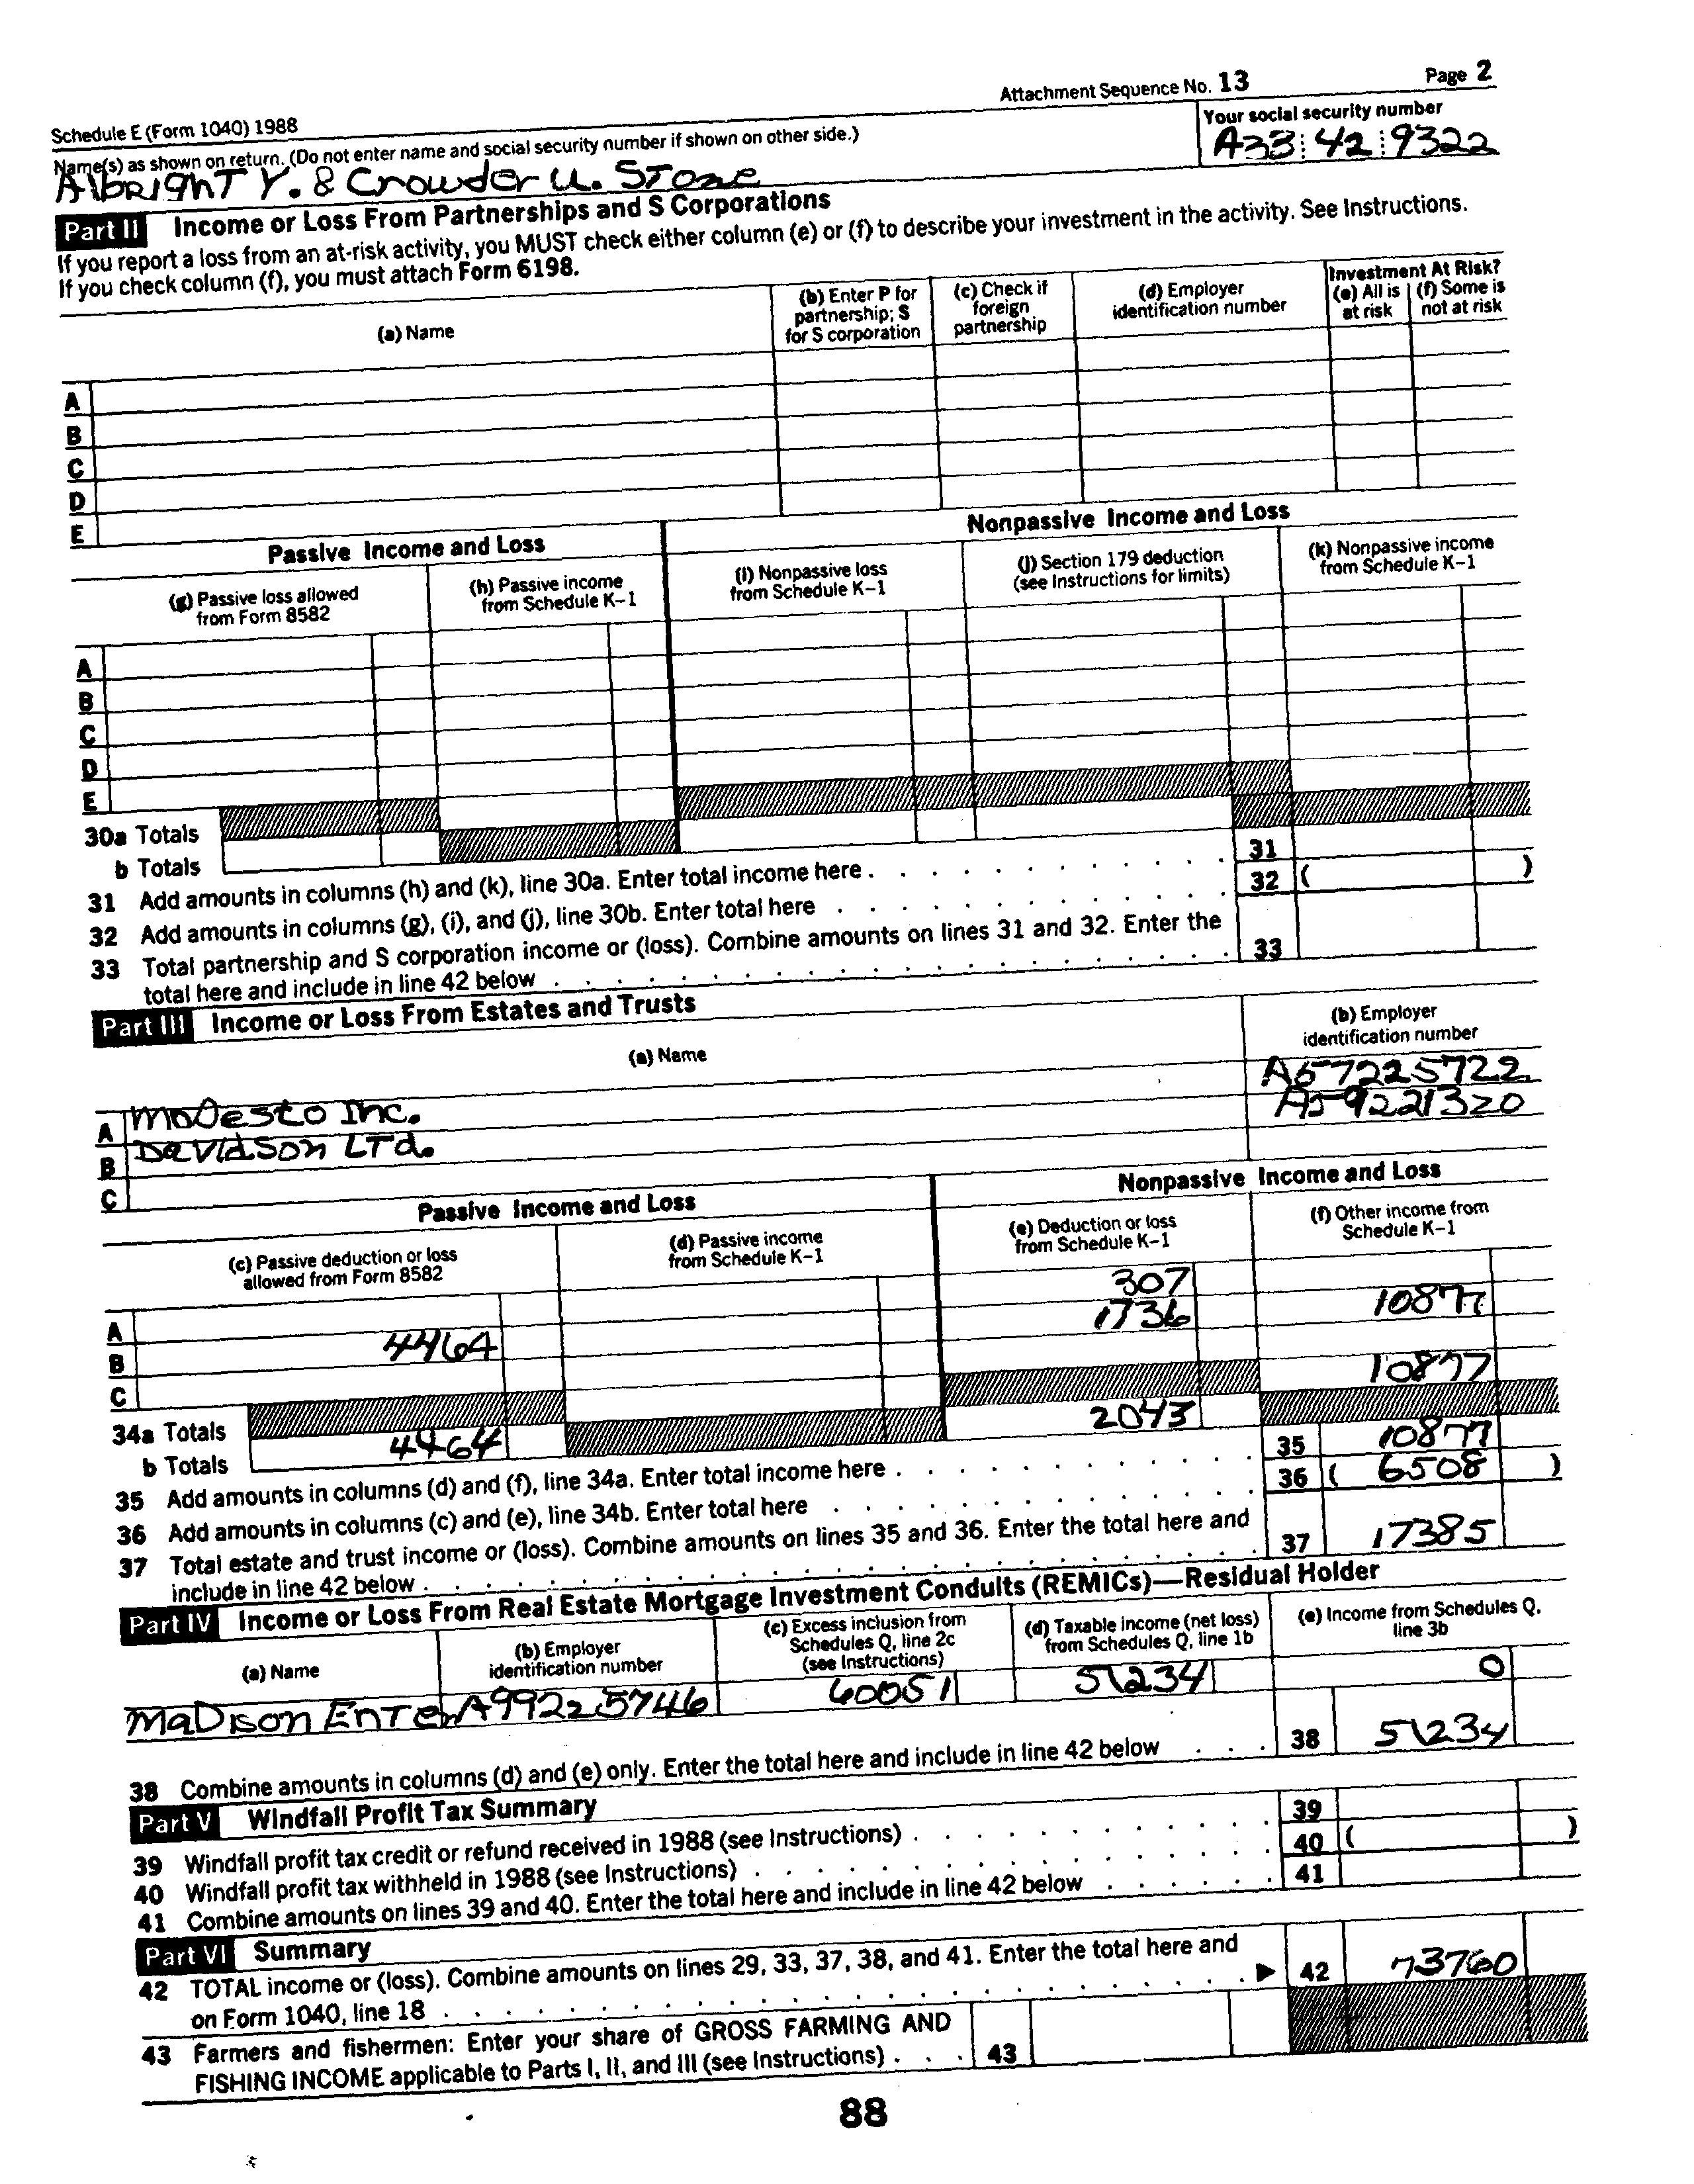 Attachment Sequence No. 13 Page 2
Schedule E (Form 1040) 1988
Name(s) as shown on return. (Do not enter name and social security number if shown on other side.) Your social security number
Albright Y. & Crowder U. Stone A33 42 9322
Part II Income or Loss From Partnerships and S Corporations
If you report a loss from an at-risk activity, you MUST check either column (e) or (f) to describe your investment in the activity. See Instructions.
If you check column (f), you must attach Form 6198.
(a) Name
(b) Enter P for partnership; S for S corporation
(c) Check if foreign partnership
(d) Employer identification number
Investment At Risk?
(e) All is at risk
(f) Some is not at risk
A
B
C
D
E
Passive Income and Loss Nonpassive Income and Loss
(g) Passive loss allowed from Form 8582
(h) Passive income from Schedule K–1
(i) Nonpassive loss from Schedule K–1
(j) Section 179 deduction (see Instructions for limits)
(k) Nonpassive income from Schedule K–1
A
B
C
D
E
30a Totals
b Totals
31 Add amounts in columns (h) and (k), line 30a. Enter total income here . . . 31
32 Add amounts in columns (g), (i), and (j), line 30b. Enter total here . . . 32 ( )
33 Total partnership and S corporation income or (loss). Combine amounts on lines 31 and 32. Enter the
total here and include in line 42 below . . . 33
Part III Income or Loss From Estates and Trusts
(a) Name
(b) Employer identification number
A Modesto Inc. A57225722
B Davidson LTd. A59221320
C
Passive Income and Loss Nonpassive Income and Loss
(c) Passive deduction or loss allowed from Form 8582
(d) Passive income from Schedule K–1
(e) Deduction or loss from Schedule K–1
(f) Other income from Schedule K–1
A 307
B 4464 1736 10877
C
34a Totals 10877
b Totals 4464 2043
35 Add amounts in columns (d) and (f), line 34a. Enter total income here . . . 35 10877
36 Add amounts in columns (c) and (e), line 34b. Enter total here . . . 36 ( 6508 )
37 Total estate and trust income or (loss). Combine amounts on lines 35 and 36. Enter the total here and
include in line 42 below . . . 37 17385
Part IV Income or Loss From Real Estate Mortgage Investment Conduits (REMICs)—Residual Holder
(a) Name
(b) Employer identification number
(c) Excess inclusion from Schedules Q, line 2c (see Instructions)
(d) Taxable income (net loss) from Schedules Q, line 1b
(e) Income from Schedules Q, line 3b
Madison Enter A99225746 60051 51234 0
38 Combine amounts in columns (d) and (e) only. Enter the total here and include in line 42 below . . . 38 51234
Part V Windfall Profit Tax Summary
39 Windfall profit tax credit or refund received in 1988 (see Instructions) . . . 39
40 Windfall profit tax withheld in 1988 (see Instructions) . . . 40 ( )
41 Combine amounts on lines 39 and 40. Enter the total here and include in line 42 below . . . 41
Part VI Summary
42 TOTAL income or (loss). Combine amounts on lines 29, 33, 37, 38, and 41. Enter the total here and
on Form 1040, line 18 . . . ▶ 42 73760
43 Farmers and fishermen: Enter your share of GROSS FARMING AND
FISHING INCOME applicable to Parts I, II, and III (see Instructions) . . . 43
88